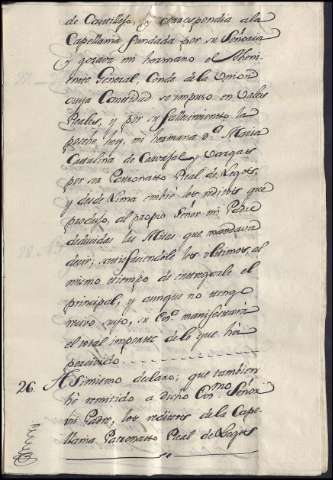 de Cantillejo, y correspondia ala
Capellania fundada por su Señoria
y gozava mi hermano el
General, Conde de la Union
cuya Cantidad se impuso en Vales
Reales, y por su fallecimiento la
poseé hoy, mi hermana D.ª Maria
Catalina de Carvajal, y Vargas
por su Patronatto Real de Legos,
y desde Lima embié los réditos que
produjo, al propio Señor mi Padre
deducidas las Misas que mandava
decir; satisfaciendole los ultimos, al
mismo tiempo de entregarle el
principal, y aunque no tengo
recivo suyo, su Ex.ª manifestará
el total importe de lo que há
percivido
26. Asimismo declaro; que tambien
hé remitido a dicho Exc.mo Señor
mi Padre, los réditos de la Cape-
llania Patronatto Real de Legos